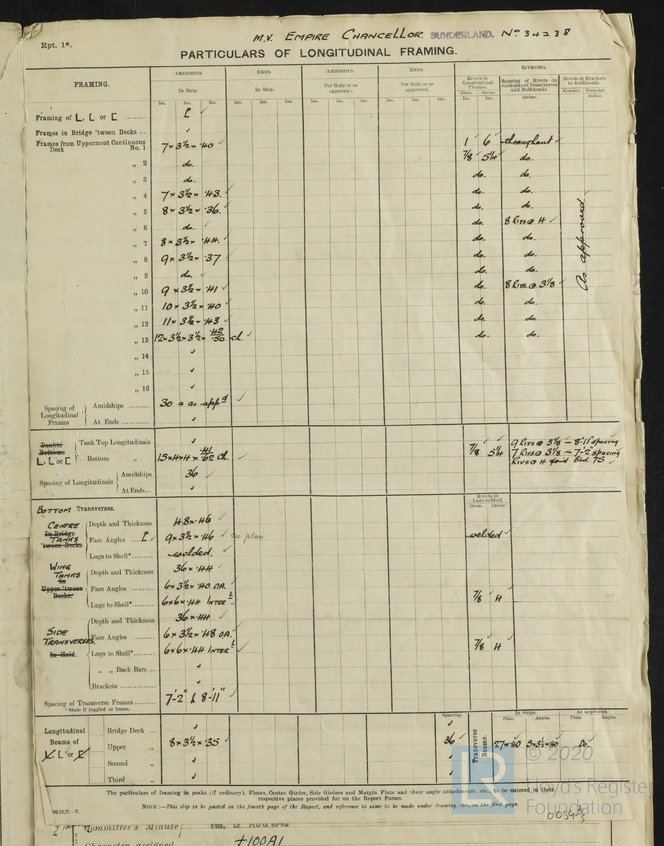 Rpt. 1*.
M.V. EMPIRE CHANCELLOR. SUNDERLAND. No 34238
PARTICULARS OF LONGITUDINAL FRAMING.
FRAMING.
AMIDSHIPS. ENDS. AMIDSHIPS. ENDS. RIVETING.
In Ship. In Ship. Per Rule or as approved. Per Rule or as approved.
Rivets in Longitudinal Frames. Spacing of Rivets on outside of Transverses and Bulkheads. Rivets in Brackets to Bulkheads.
Ins. Ins. Ins. Ins. Ins. Ins. Ins. Ins. Ins. Ins. Ins. Ins. Diam. Spcng. Ins. Ins. Number. Diameter.
Framing of L, L or [ [ ✓
Frames in Bridge 'tween Decks ... ✓
Frames from Uppermost Continuous Deck No. 1 7 × 3½ × .40 ✓ 1 6 throughout ✓
„ 2 do. 7/8 5¼ do.
„ 3 do. do. do.
„ 4 7 × 3½ × .43. ✓ do. do.
„ 5 8 × 3½ × .36. ✓ do. do.
„ 6 do. ✓ do. 8 Rivs @ 4 ✓
„ 7 8 × 3½ × .44. ✓ do. do.
„ 8 9 × 3½ × .37 do. do.
„ 9 do. ✓ do. do.
„ 10 9 × 3½ × .41 ✓ do. 8 Rivs @ 3⅛ ✓
„ 11 10 × 3½ × .40 do. do.
„ 12 11 × 3½ × .43 do. do.
„ 13 12 × 3½ × 3½ × .42/.50 ch. ✓ do. do.
As approved ✓
„ 14 ✓
„ 15 ✓
„ 16 ✓
Spacing of Longitudinal Frames { Amidships 30 & as app'd ✓
At Ends ✓
Double Bottoms L, L or [ Tank Top Longitudinals ✓
Bottom „ 15×4×4× .41/.62 ch. ✓ 7/8 5¼ 9 Rivs @ 3⅛ – 8'-11" spacing
7 Rivs @ 3⅛ – 7'-2" spacing
Spacing of Longitudinals { Amidships 36 ✓
At Ends... ✓
BOTTOM Transverses. Rivets in Lugs to Shell
Diam. Spcng.
CENTRE TANKS In Bridge 'tween Decks { Depth and Thickness 48 × .46 ✓
Face Angles .... [ 9 × 3½ × .46 ✓ see plan welded ✓
Lugs to Shell* welded. ✓
WING TANKS In Upper 'tween Decks. { Depth and Thickness 36 × .44 ✓
Face Angles 6 × 3½ × .40 OA. ✓
Lugs to Shell* 6 × 6 × .44 INTER L ✓ 7/8 4
SIDE TRANSVERSES In Hold. { Depth and Thickness 36 × .44 ✓
Face Angles 6 × 3½ × .48 OA. ✓
Lugs to Shell* 6 × 6 × .44 INTER L ✓ 7/8 4
„ „ Back Bars ... ✓
Brackets ✓
Spacing of Transverse Frames 7'-2" & 8'-11" ✓
*State if joggled or liners.
Spacing In Ships. As Approved.
Plate. Angles. Plate. Angles.
Longitudinal Beams of L, L or [ { Bridge Deck ... ✓
Upper „ 8 × 3½ × .35 ✓ 36 ✓ Transverse Beams. 27 × .40 5 × 3½ × .40 Do.
Second „ ✓
Third „ ✓
The particulars of framing in peaks (if ordinary), Floors, Centre Girder, Side Girders and Margin Plate and their angle attachments, etc., to be entered in their
respective places provided for on the Report Forms.
NOTE:—This slip to be pasted on the fourth page of the Report, and reference to same to be made under framing, etc., on the first page.
Committee's Minute
Character assigned
+100A1
© 2020
Lloyd's Register
Foundation